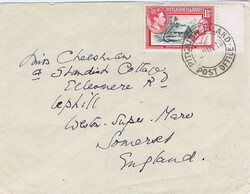 PITCAIRN ISLANDS
PITCAIRN ISLAND
POST OFFICE
Miss Cheeshman
Standish Cottage
Ellesmere Rd
Uphill
Weston-Super-Mare
Somerset
England.